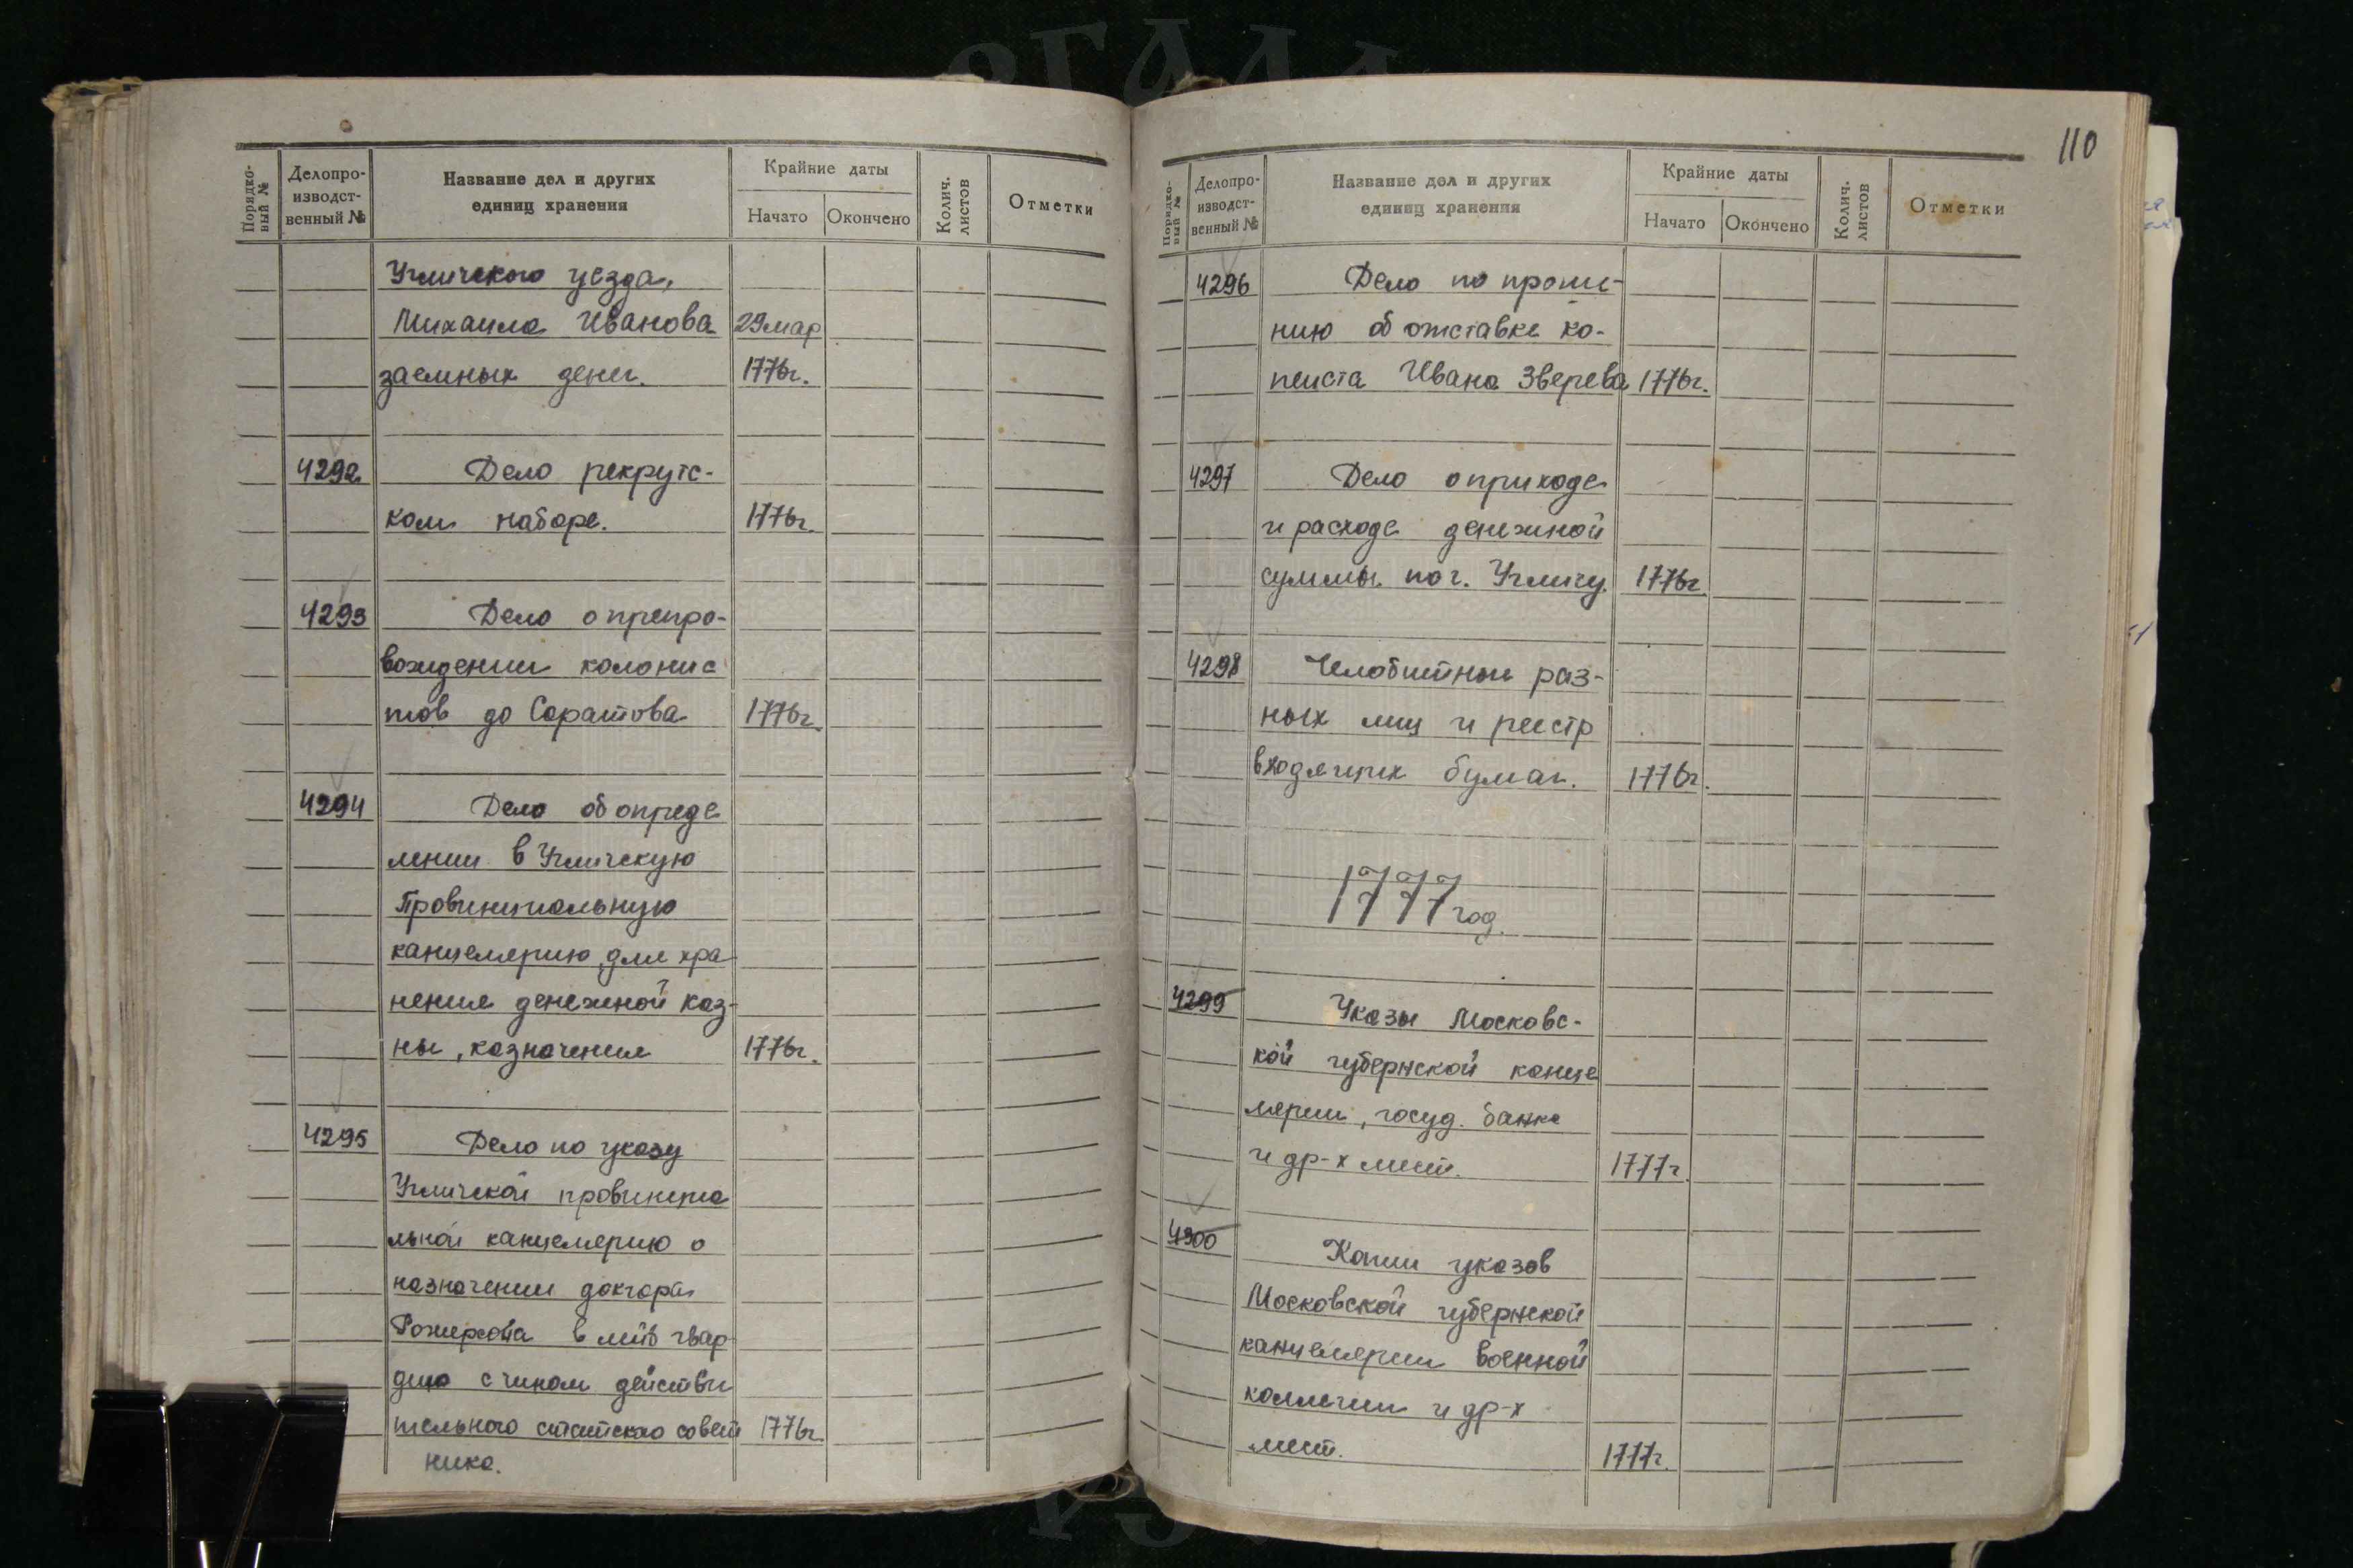 Порядко-
вый №
Делопро-
изводст-
венный №
Название дел и других
единиц хранения
Крайние даты
Начато
Окончено
Колич.
листов
Отметки
Угличского уезда,
Михаила Иванова 29 мар
заемных денег. 1776г.
4292 Дело рекрутс-
ком наборе. 1776г.
4293 Дело о препро-
вождении колонис
тов до Саратова 1776г.
4294 Дело об опреде
лении в Угличскую
Провинциальную
канцелярию, для хра
нения денежной каз-
ны, казначения 1776г.
4295 Дело по указу
Угличской провинциа
льной канцелярию о
назначении доктора
в лейб гвар
дию с чином действи
тельного статского совет 1776г.
ника.
110
Порядко-
вый №
Делопро-
изводст-
венный №
Название дел и других
единиц хранения
Крайние даты
Начато
Окончено
Колич.
листов
Отметки
4296 Дело по проше-
нию об отставке ко-
пеиста Ивана Зверева 1776г.
4297 Дело о приходе
и расходе денежной
суммы по г. Угличу. 1776г.
4298 Челобитные раз-
ных лиц и реестр
входящих бумаг. 1776г.
1777 год.
4299 Указы Московс-
кой губернской канце
лярии, госуд. банка
и др-х мест. 1777г.
4300 Копии указов
Московской губернской
канцелярии военной
коллегии и др-х
мест. 1777г.